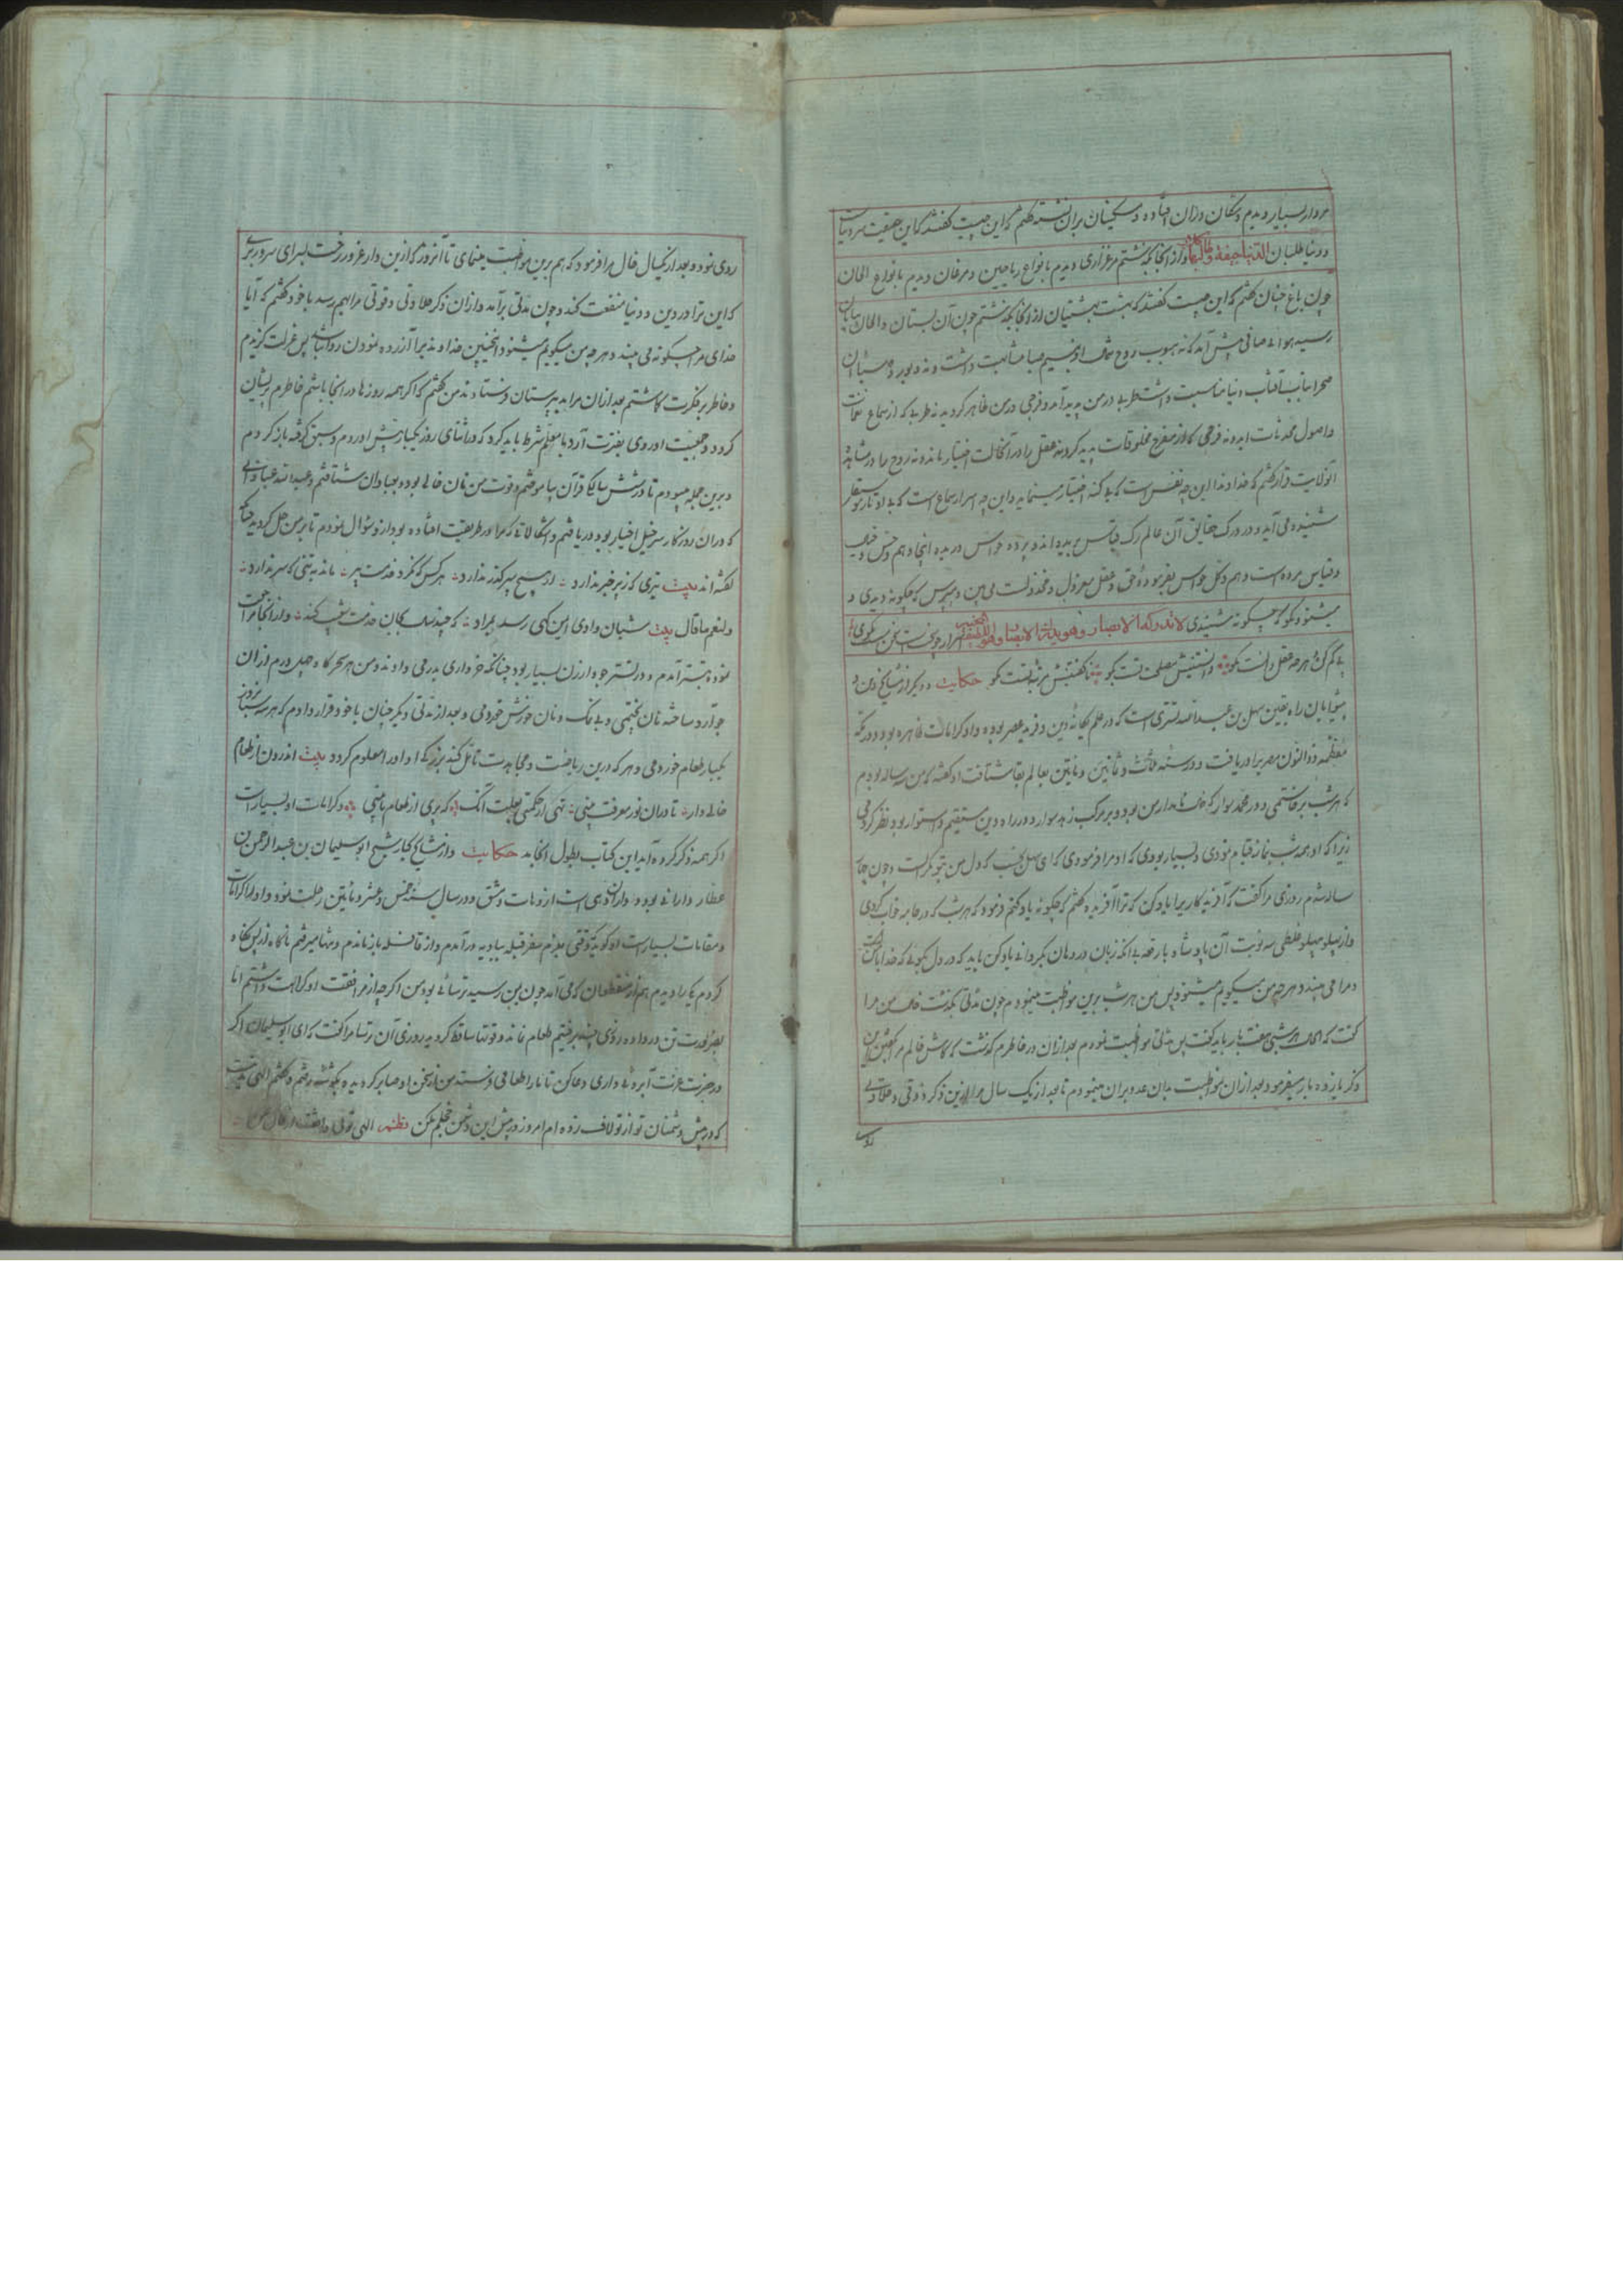 مردار بسیار دیدم و سگان دران افتاده و مسکینان بران نشسته گفتم که این چیست گفتند که این حقیقت سر دنیاست
و دنیا طلبان الدنیا جیفة وطالبها کلاب و از انجا بگذشتم مرغزاری دیدم بانواع ریاحین و مرغان دیدم بانواع الحان
چون باغ جنان گفتم که این چیست گفتند که بهشت بهشتیان از انجا بگذشتم چون آن بستان و الحان بپایان
رسید هوای صافی پیش آمد که نه هبوب روح شمال او بنسیم صبا مشابهت داشت و نه دبور
صحرا بتابش آفتاب دنیا مناسبت داشت طربی در من پدید آمد و فرحی در من ظاهر گردید نه طربی که از سماع نغمات
و اصول محدثات اید و نه فرحی که از مفرح مخلوقات پدید گردد نه عقل را در آنحالت اختیار ماند و نه روح را در مشاهده
آنولایت قرار گفتم که خداوندا این چه نفس است که بدل کند اختیار مینماید و این چه اسرار سماع است که بی اوتار موسیقار
شنیده می آید و در درک حقایق آن عالم رگ قیاس بریده اند و پرده حواس دریده اینجا وهم و حس و خیال
و قیاس مرده است و هم و کل حواس بغیر بوده و حق و عقل معزول و مخذولست می بین و مپرس که چگونه دیدی و
میشنو و مگو که چگونه شنیدی لا تدرکه الابصار وهو یدرک الابصار وهو اللطیف الخبیر
بی گم کن هرچه عقل دانست مگو دانستنیش مصلحت نیست مگو ناگفتنیش مرتبه تست مگو حکایت و دیگر از مشایخ دین و
پیشوایان راه یقین سهل بن عبدالله تستری است که در علم یگانهٔ دین و فرید عصر بوده و او کرامات ظاهره بود و در مکه
معظمه ذوالنون مصری را دریافت و در سنه ثلث و ثمانین و مأتین بعالم بقا شتافت او گفته که من سه ساله بودم
که هر شب برخاستمی و در محمد سوار که خال نامدار من بود و بر مرکب زهد سوار و در راه دین مستقیم و استوار بود نظر کردمی
زیرا که او همه شب بنماز قیام نمودی و بسیار بودی که او مرا فرمودی که ای سهل بخسب که دل من بتو نگرانست و چون چهار
ساله شدم روزی مرا گفت که آفریدگار را یاد کن که ترا آفریده گفتم که چگونه یاد کنم فرمود که هر شب که در جامه خواب گردی
و از پهلو بپهلو غلطی سه نوبت آن پادشاه بار قهر بی انکه زبان در دهان بگردانی یاد کن باید که در دل بگوئی که خدا با منست
و مرا می بیند و هرچه من میگویم میشنود پس من هر شب برین مواظبت مینمودم چون مدتی بگذشت خال من مرا
گفت که هر شبی هفت بار باید گفت پس مدتی مواظبت نمودم بعد ازان در خاطرم گذشت که کاش خالم مرا
ذکر یازده بار میفرمود بعد ازان مواظبت بدان عدد بران مینمودم تا بعد از یک سال مرا ازین ذکر ذوقی و حلاوتی
روی
روی نمود و بعد از یکسال خال مرا فرمود که هم برین مواظبت مینمای تا آنروز که ازین دار غرور رخت بسرای سرور بری
که این ترا در دین و دنیا منفعت کند و چون مدتی برآمد و ازان ذکر حلاوتی و قوتی مرا بهم رسید با خود گفتم که آیا
خدای مرا چگونه می بیند و هرچه من میگویم میشنود اینچنین خداوند را آزرده نمودن روا نباشد پس عزلت گزیدم
و خاطر بر فکرت گماشتم بعد ازان مرا بدبیرستان فرستادند من گفتم که اگر همه روزها در انجا باشم خاطرم پریشان
گردد و جمعیت او روی بفترت آرد با معلم شرط باید کرد که در اثنای روز یکبار پیش او روم و سبق گرفته بازگردم
و برین جمله میبودم تا در شش سالگی قرآن بیاموختم و قوت من نان خالی بود و بعبادان شتافتم و عبدالله عبادانی
که دران روزگار سرخیل اخیار بود دریافتم و اشکالاتی که مرا در طریقت افتاده بود از و سؤال نمودم تا بر من حل گردید چنانکه
گفته اند بیت تیری که ز پر خبر ندارد از هیچ سپر گذر ندارد هر کس که نکرد خدمت پیر ماند به تنی که سر ندارد
ولنعم ما قال بیت شبان وادی ایمن گهی رسد بمراد که چند سال بجان خدمت شعیب کند و از انجا مراجعت
نموده بتستر آمدم و در تستر جو ارزان بسیار بود چنانکه خرواری بدرمی دادند و من هر سحرگاه چهل درم ازان
جو آرد ساخته نان پختمی و بی نمک و نان خورش خوردمی و بعد از مدتی دیگر چنان با خود قرار دادم که هر سه شبانه روز
یکبار طعام خوردمی و هر که درین ریاضت و مجاهدت تأمل کند بزرگی او را معلوم گردد بیت اندرون از طعام
خالی دار تا دران نور معرفت بینی تهی از حکمتی بعلت آنک که پری از طعام تا بینی و کرامات او بسیارست
اگر همه ذکر کرده آید این کتاب بطول انجامد حکایت و از مشایخ کبار شیخ ابوسلیمان بن عبدالرحمن بن
عطار دارانی بوده و داران دهی است از دهات دمشق و در سال سنه خمس و عشر و مأتین رحلت نمود و او را کرامات
و مقامات بسیارست او گوید که وقتی بعزم سفر قبله ببادیه درآمدم و از قافله بازماندم و تنها میرفتم ناگاه از پس نگاه
کردم یکی را دیدم هم از منقطعان که می آمد چون بمن رسید ترسائی بود من اگرچه از مرافقت او کراهت داشتم اما
بضرورت تن در داده روزی چند برفتیم طعام نماند و قوتها ساقط گردید روزی آن ترسا مرا گفت که ای ابوسلیمان اگر
در حضرت عزت آبروئی داری دعا کن تا ما را طعامی فرستد من از سخن او صابر گردیده بگوشه رفتم و گفتم الهی
که در پیش دشمنان تو از تو لاف زده ام امروز در پیش این دشمن خجلم مکن نظم الهی توئی واقف از حال من